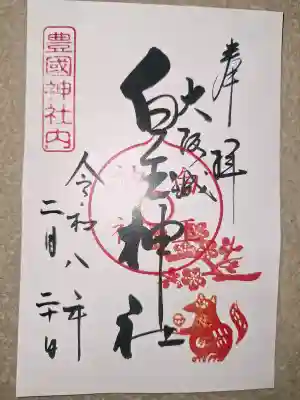 奉拝
大阪城
白玉神社
令和八年
二月二十日
豊國神社内